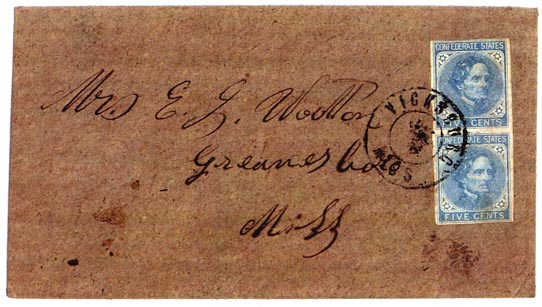 Mrs E. G. Wooton
Greenesboro
Miss
CONFEDERATE STATES
FIVE CENTS
VICKSBURG
MISS
CONFEDERATE STATES
FIVE CENTS